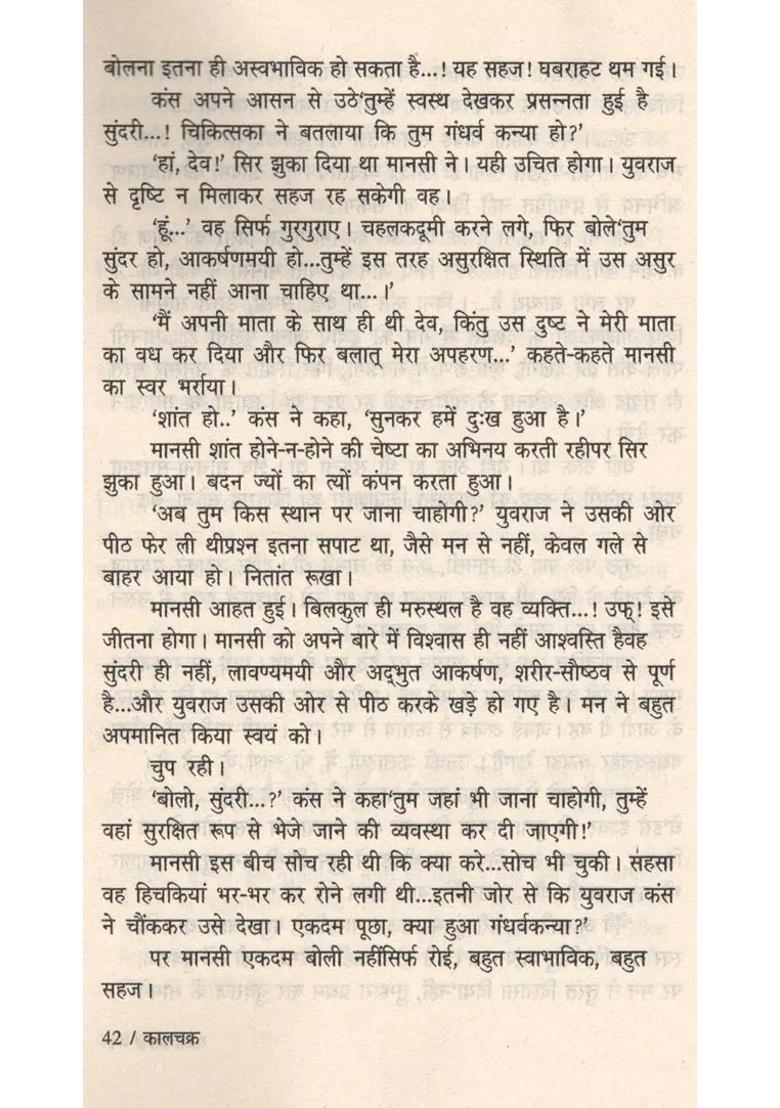 बोलना इतना ही अस्वभाविक हो सकता है...! यह सहज! घबराहट थम गई।
कंस अपने आसन से उठे'तुम्हें स्वस्थ देखकर प्रसन्नता हुई है
सुंदरी...! चिकित्सका ने बतलाया कि तुम गंधर्व कन्या हो?'
'हां, देव!' सिर झुका दिया था मानसी ने। यही उचित होगा। युवराज
से दृष्टि न मिलाकर सहज रह सकेगी वह।
'हूं...' वह सिर्फ गुरगुराए। चहलकदूमी करने लगे, फिर बोले'तुम
सुंदर हो, आकर्षणमयी हो...तुम्हें इस तरह असुरक्षित स्थिति में उस असुर
के सामने नहीं आना चाहिए था...।'
'मैं अपनी माता के साथ ही थी देव, किंतु उस दुष्ट ने मेरी माता
का वध कर दिया और फिर बलात् मेरा अपहरण...' कहते-कहते मानसी
का स्वर भर्राया।
'शांत हो..' कंस ने कहा, 'सुनकर हमें दुःख हुआ है।'
मानसी शांत होने-न-होने की चेष्टा का अभिनय करती रहीपर सिर
झुका हुआ। बदन ज्यों का त्यों कंपन करता हुआ।
'अब तुम किस स्थान पर जाना चाहोगी?' युवराज ने उसकी ओर
पीठ फेर ली थीप्रश्न इतना सपाट था, जैसे मन से नहीं, केवल गले से
बाहर आया हो। नितांत रूखा।
मानसी आहत हुई। बिलकुल ही मरुस्थल है वह व्यक्ति...! उफ्! इसे
जीतना होगा। मानसी को अपने बारे में विश्वास ही नहीं आश्वस्ति हैवह
सुंदरी ही नहीं, लावण्यमयी और अद्‌भुत आकर्षण, शरीर-सौष्ठव से पूर्ण
है...और युवराज उसकी ओर से पीठ करके खड़े हो गए है। मन ने बहुत
अपमानित किया स्वयं को।
चुप रही।
'बोलो, सुंदरी...?' कंस ने कहा'तुम जहां भी जाना चाहोगी, तुम्हें
वहां सुरक्षित रूप से भेजे जाने की व्यवस्था कर दी जाएगी!'
मानसी इस बीच सोच रही थी कि क्या करे...सोच भी चुकी। सहसा
वह हिचकियां भर-भर कर रोने लगी थी...इतनी जोर से कि युवराज कंस
ने चौंककर उसे देखा। एकदम पूछा, क्या हुआ गंधर्वकन्या?'
पर मानसी एकदम बोली नहींसिर्फ रोई, बहुत स्वाभाविक, बहुत
सहज।
42 / कालचक्र